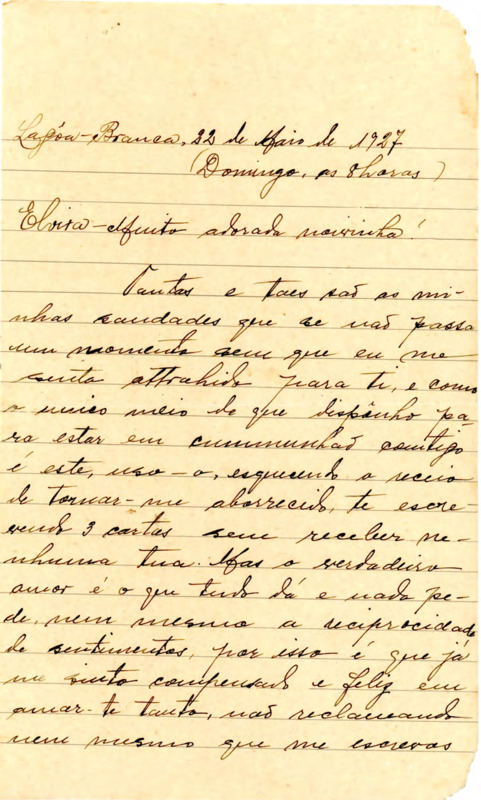 Lagôa-Branca, 22 de Maio de 1927
(Domingo, as 8 horas)
Elvira - Muito adorada noivinha!
Tantas e taes saõ as mi-
nhas saudades que se naõ passa
um momento sem que eu me
sinta attrahido para ti, e como
o unico meio de que dispônho pa-
ra estar em cummunhaõ comtigo
é este, uso-o, esquecendo o receio
de tornar-me aborrecido, te escre-
vendo 3 cartas sem receber ne-
nhuma tua. Mas o verdadeiro
amor é o que tudo dá e nada pe-
de, nem mesmo a reciprocidade
de sentimentos, por isso é que já
me sinto compensado e feliz em
amar-te tanto, naõ reclamando
nem mesmo que me escrevas